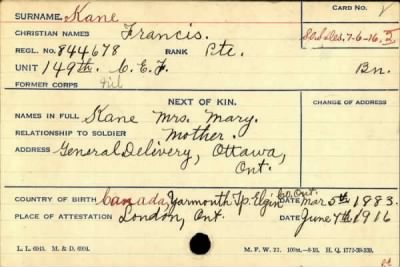 SURNAME Kane CARD NO. V
CHRISTIAN NAMES Francis. S.O.S. Les. 7-6-16. 5
REGL. NO. 844678 RANK Pte.
UNIT 149th. C.E.F. Bn.
FORMER CORPS nil
NEXT OF KIN. CHANGE OF ADDRESS
NAMES IN FULL Kane Mrs. Mary.
RELATIONSHIP TO SOLDIER Mother.
ADDRESS General Delivery, Ottawa,
Ont.
COUNTRY OF BIRTH Canada, Yarmouth Tp. Elgin Co. Ont. DATE Mar. 5th 1883.
PLACE OF ATTESTATION London, Ont. DATE June 7th 1916
L. L. 6945. M. & D. 6994. M. F. W. 22.